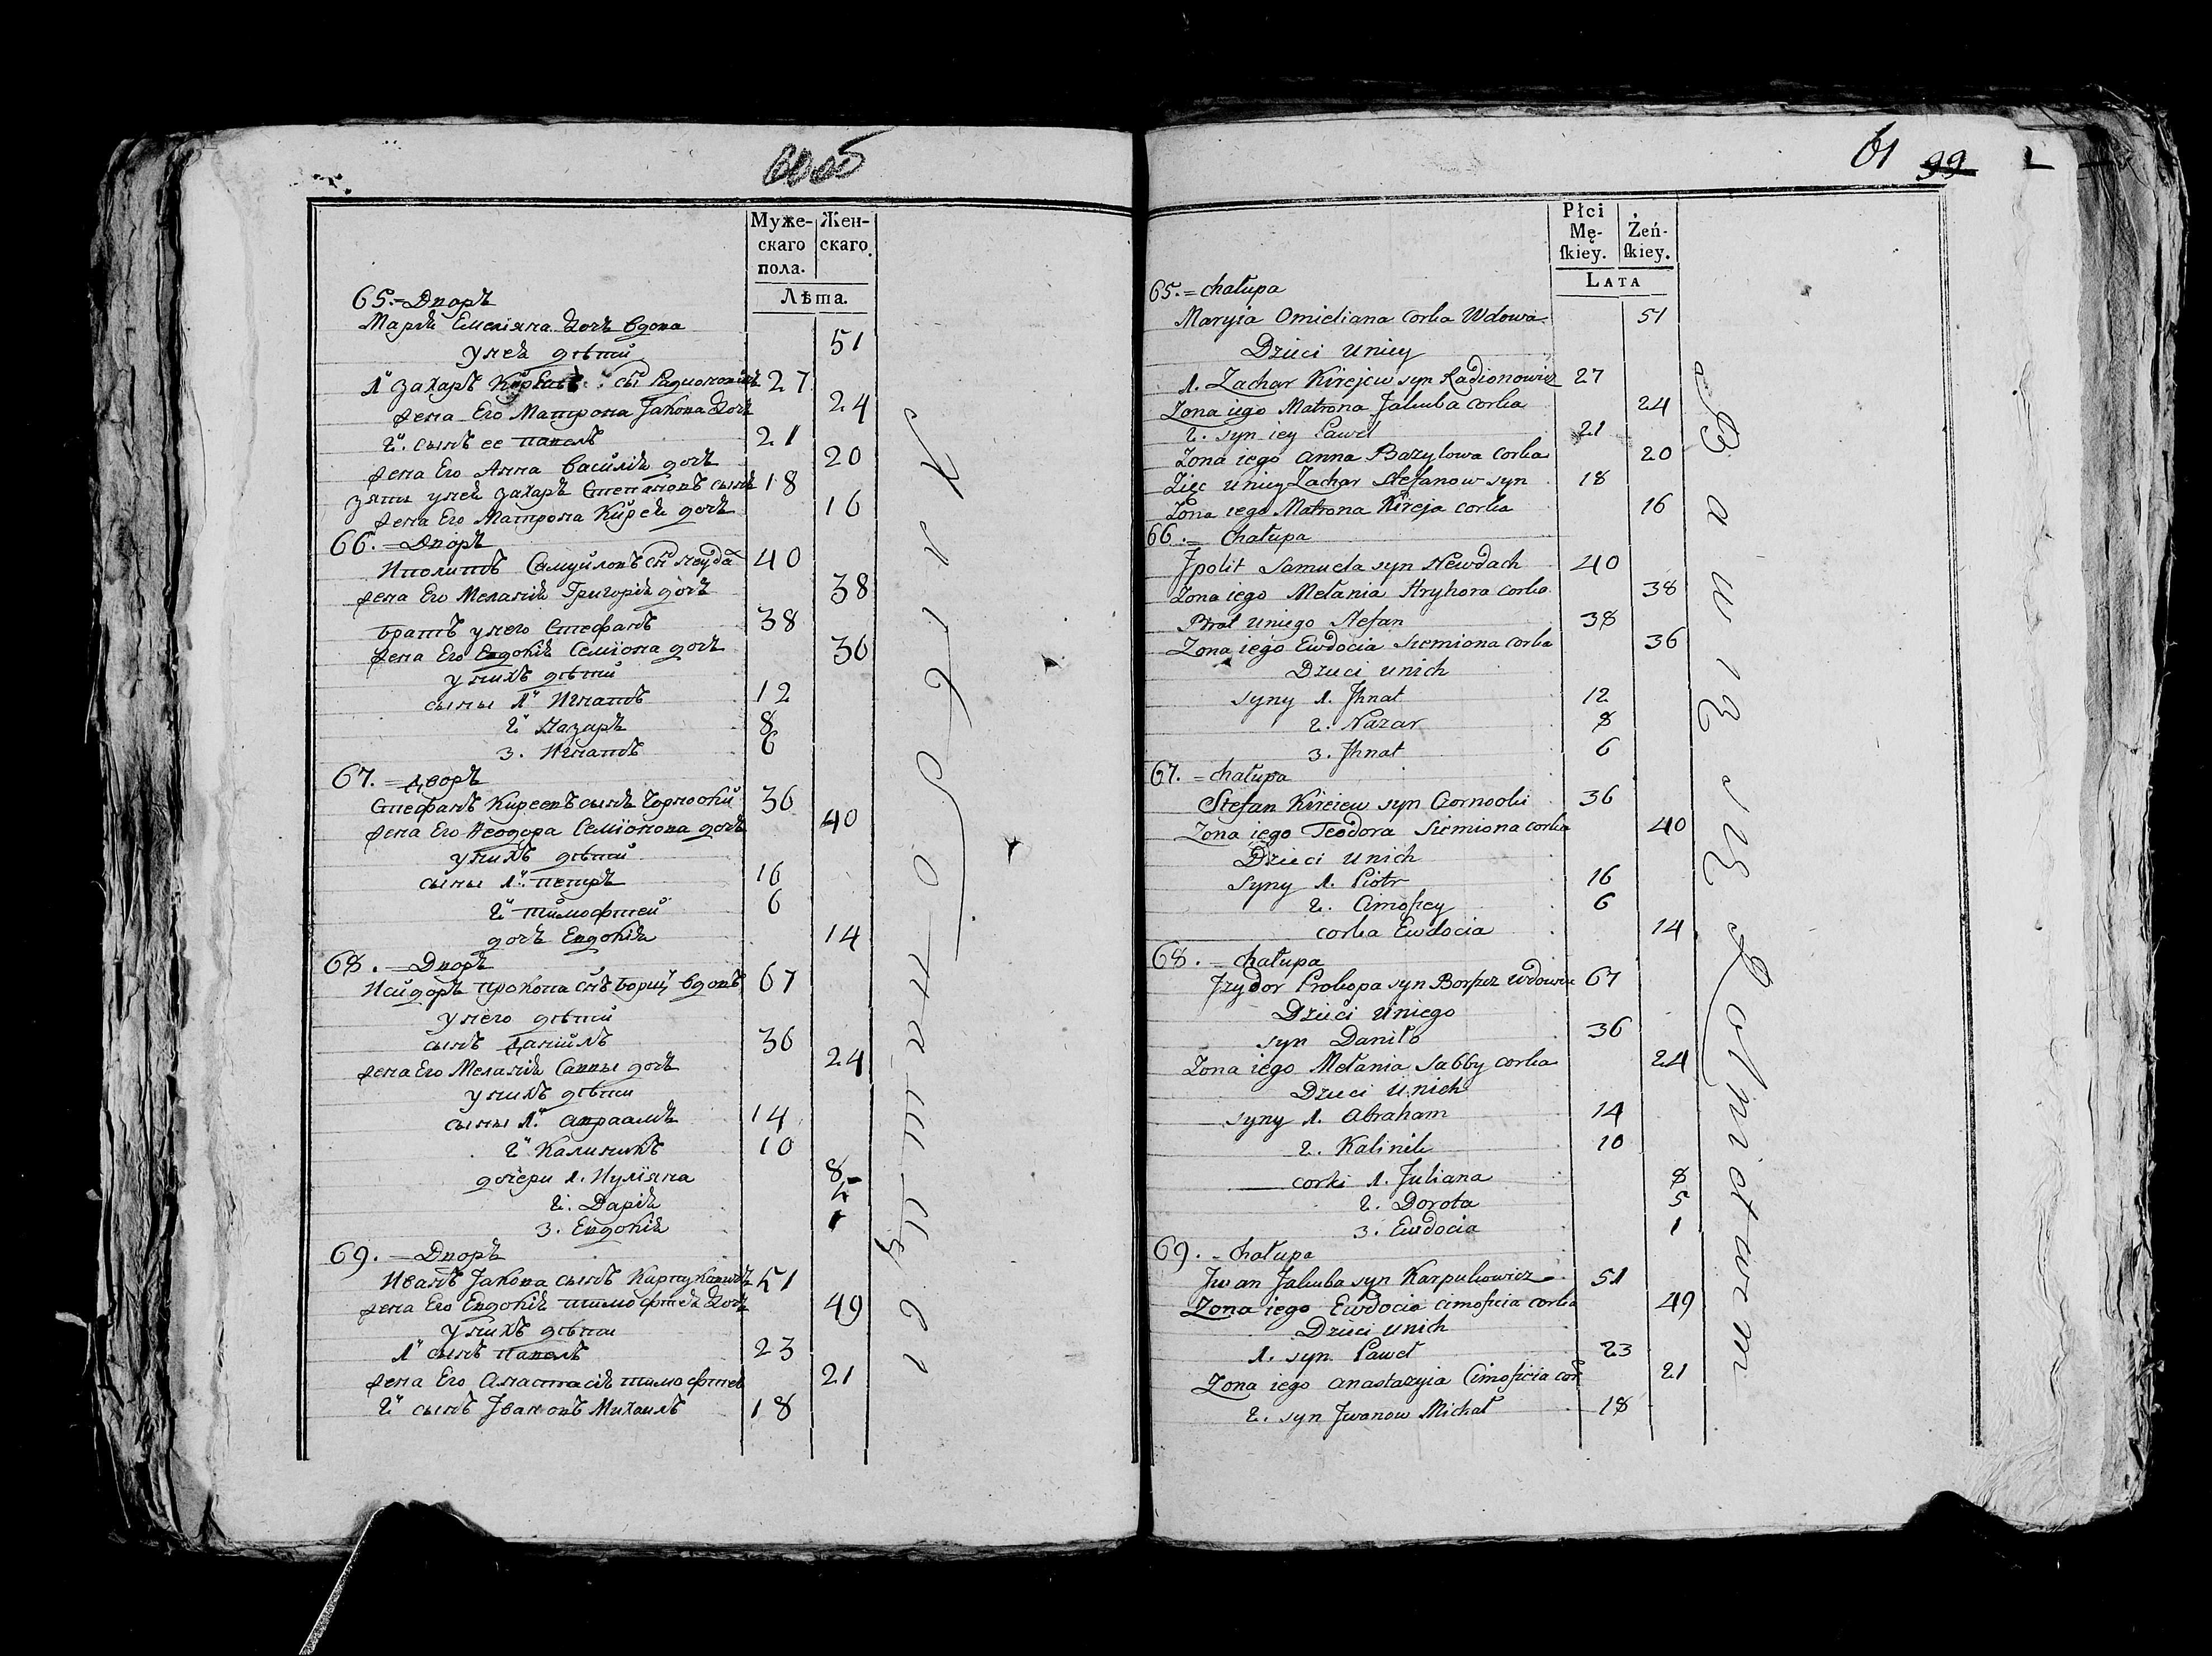 60 об
Муже-
скаго
пола.
Жен-
скаго.
Лѣта.
65.=Дворъ
Марія Емеліяна дочъ вдова 51
у неи дѣти
1. Захаръ Киреевъ сы Радионовичъ 27
жена Его Матрона Јакова дочъ 24
2. сынъ ее павелъ 21
жена Его Анна василія дочъ 20
зять унеи захаръ Степановъ сынъ 18
жена Его Матрона Кирея дочъ 16
66.=Дворъ
Иполитъ Самуйловъ сы неуда 40
жена Его Меланія Григорія дочъ 38
братъ унего Стефанъ 38
жена Его Евдокія Семіона дочъ 36
у нихъ дѣти
сыны 1. Игнатъ 12
2. Назаръ 8
3. Игнатъ 6
67.=дворъ
Стефанъ Киреевъ сынъ Чорноокий 36
жена Его Феодора Семіонова дочъ 40
у нихъ дѣти
сыны 1. петръ 16
2. тимофтей 6
дочъ Евдокія 14
68.=Дворъ
Исидоръ прокопа снъ борщ вдовъ 67
унего дѣти
сынъ Даніилъ 36
жена Его Меланія Саввы дочъ 24
у нихъ дѣти
сыны 1. авраамъ 14
2. Калиникъ 10
дочери 1. Иуліяна 8
2. Дарія 5
3. Евдокія 1
69.=Дворъ
Иванъ Јакова сынъ Карпуковичъ 51
жена Его Евдокія тимофтея дочъ 49
у нихъ дѣти
1. сынъ павелъ 23
жена Его Анастасія тимофтея 21
2. сынъ Јвановъ Михаилъ 18
61 99
Płci
Mę-
ſkiey.
Żeń-
ſkiey.
LATA
65.=chałupa
Maryia Omieliana corka Wdowa 51
Dzieci uniey
1. Zachar Kirejew syn Radionowicz 27
Zona iego Matrona Jakuba corka 24
2. syn iey Paweł 21
Zona iego anna Bazylowa corka 20
Zięc uniey Zachar Stefanow syn 18
Zona iego Matrona Kireja corka 16
66.=Chałupa
Jpolit Samuela syn Newdach 40
Zona iego Melania Hryhora corka 38
Brat uniego Stefan 38
Zona iego Ewdocia Siemiona corka 36
Dzieci unich
syny 1. Jhnat 12
2. Nazar 8
3. Jhnat 6
67.=chałupa
Stefan Kireiew syn Czornooki 36
Zona iego Teodora Siemiona corka 40
Dzieci unich
syny 1. Piotr 16
2. Cimofiey 6
corka Ewdocia 14
68.=chałupa
Jzydor Prokopa syn Borszcz wdowiec 67
Dzieci uniego
syn Daniło 36
Zona iego Melania Sabby corka 24
Dzieci unich
syny 1. Abraham 14
2. Kalinik 10
corki 1. Juliana 8
2. Dorota 5
3. Ewdocia 1
69.=Chałupa
Jwan Jakuba syn Karpukowicz 51
Zona iego Ewdocia cimoficia corka 49
Dzieci unich
1. syn Paweł 23
Zona iego anastazyia Cimoficia cor 21
2. syn Jwanow Michał 18